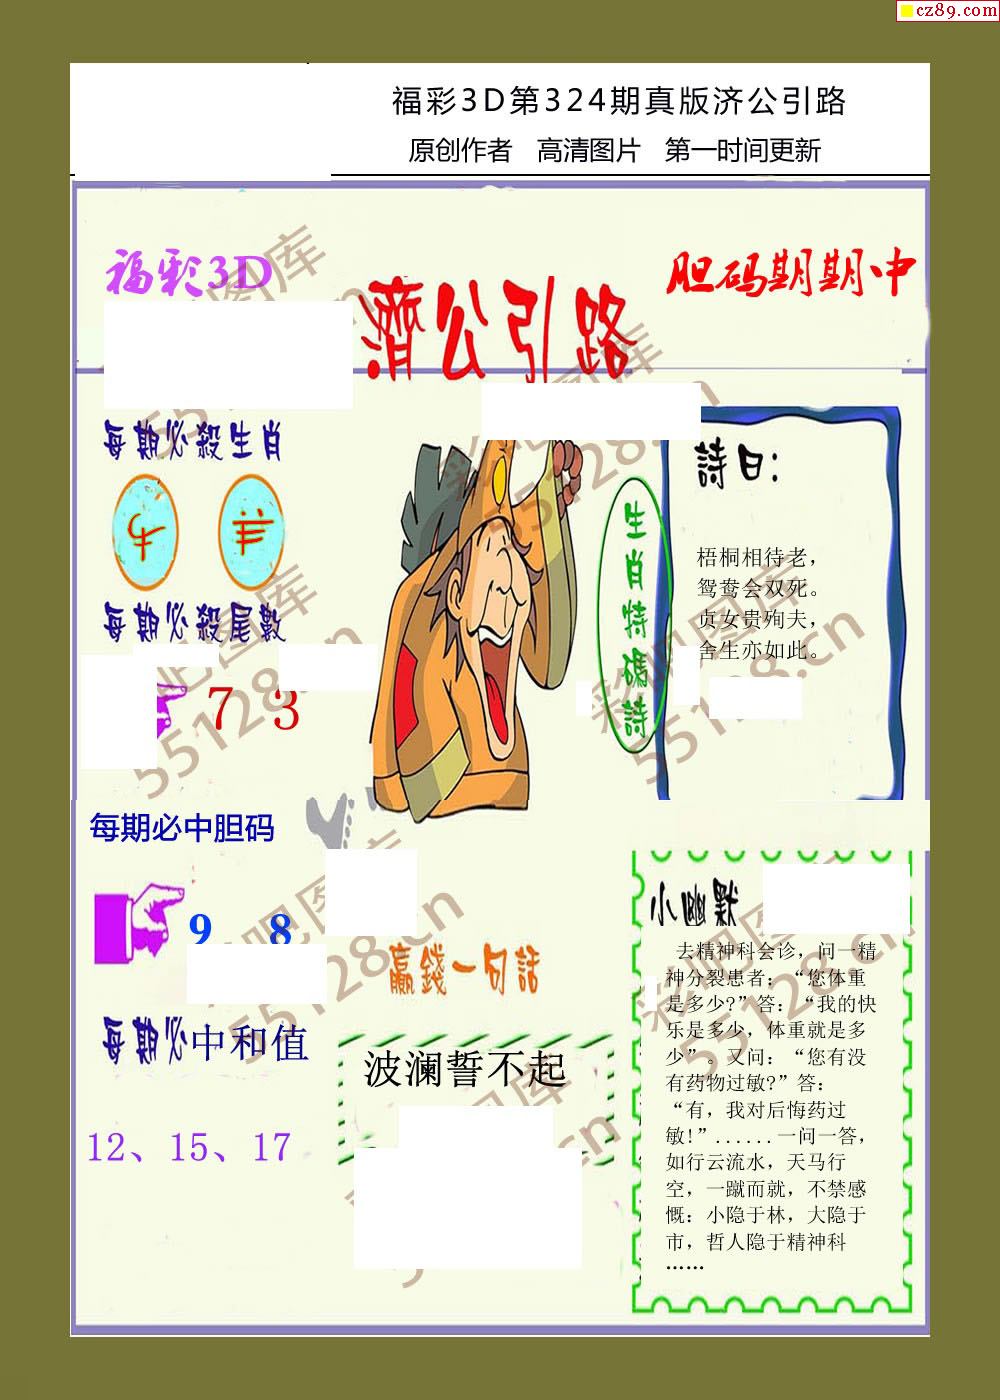 cz89.com
福彩3D第324期真版济公引路
原创作者 高清图片 第一时间更新
福彩3D
濟公引路
胆码期期中
每期必殺生肖
牛 羊
每期必殺尾數
7 3
每期必中胆码
9 8
每期必中和值
12、15、17
生肖特碼詩
詩曰：
梧桐相待老，
鸳鸯会双死。
贞女贵殉夫，
舍生亦如此。
贏錢一句話
波澜誓不起
小幽默
去精神科会诊，问一精
神分裂患者；“您体重
是多少?”答：“我的快
乐是多少，体重就是多
少”。又问：“您有没
有药物过敏?”答：
“有，我对后悔药过
敏!”......一问一答，
如行云流水，天马行
空，一蹴而就，不禁感
慨：小隐于林，大隐于
市，哲人隐于精神科
……
彩吧图库
55128.cn